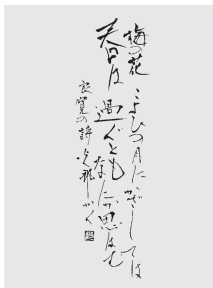 梅の花
こよひの月に
かざしては
春日は
過ぐとも
なにか思はむ
良寛の詩
かく